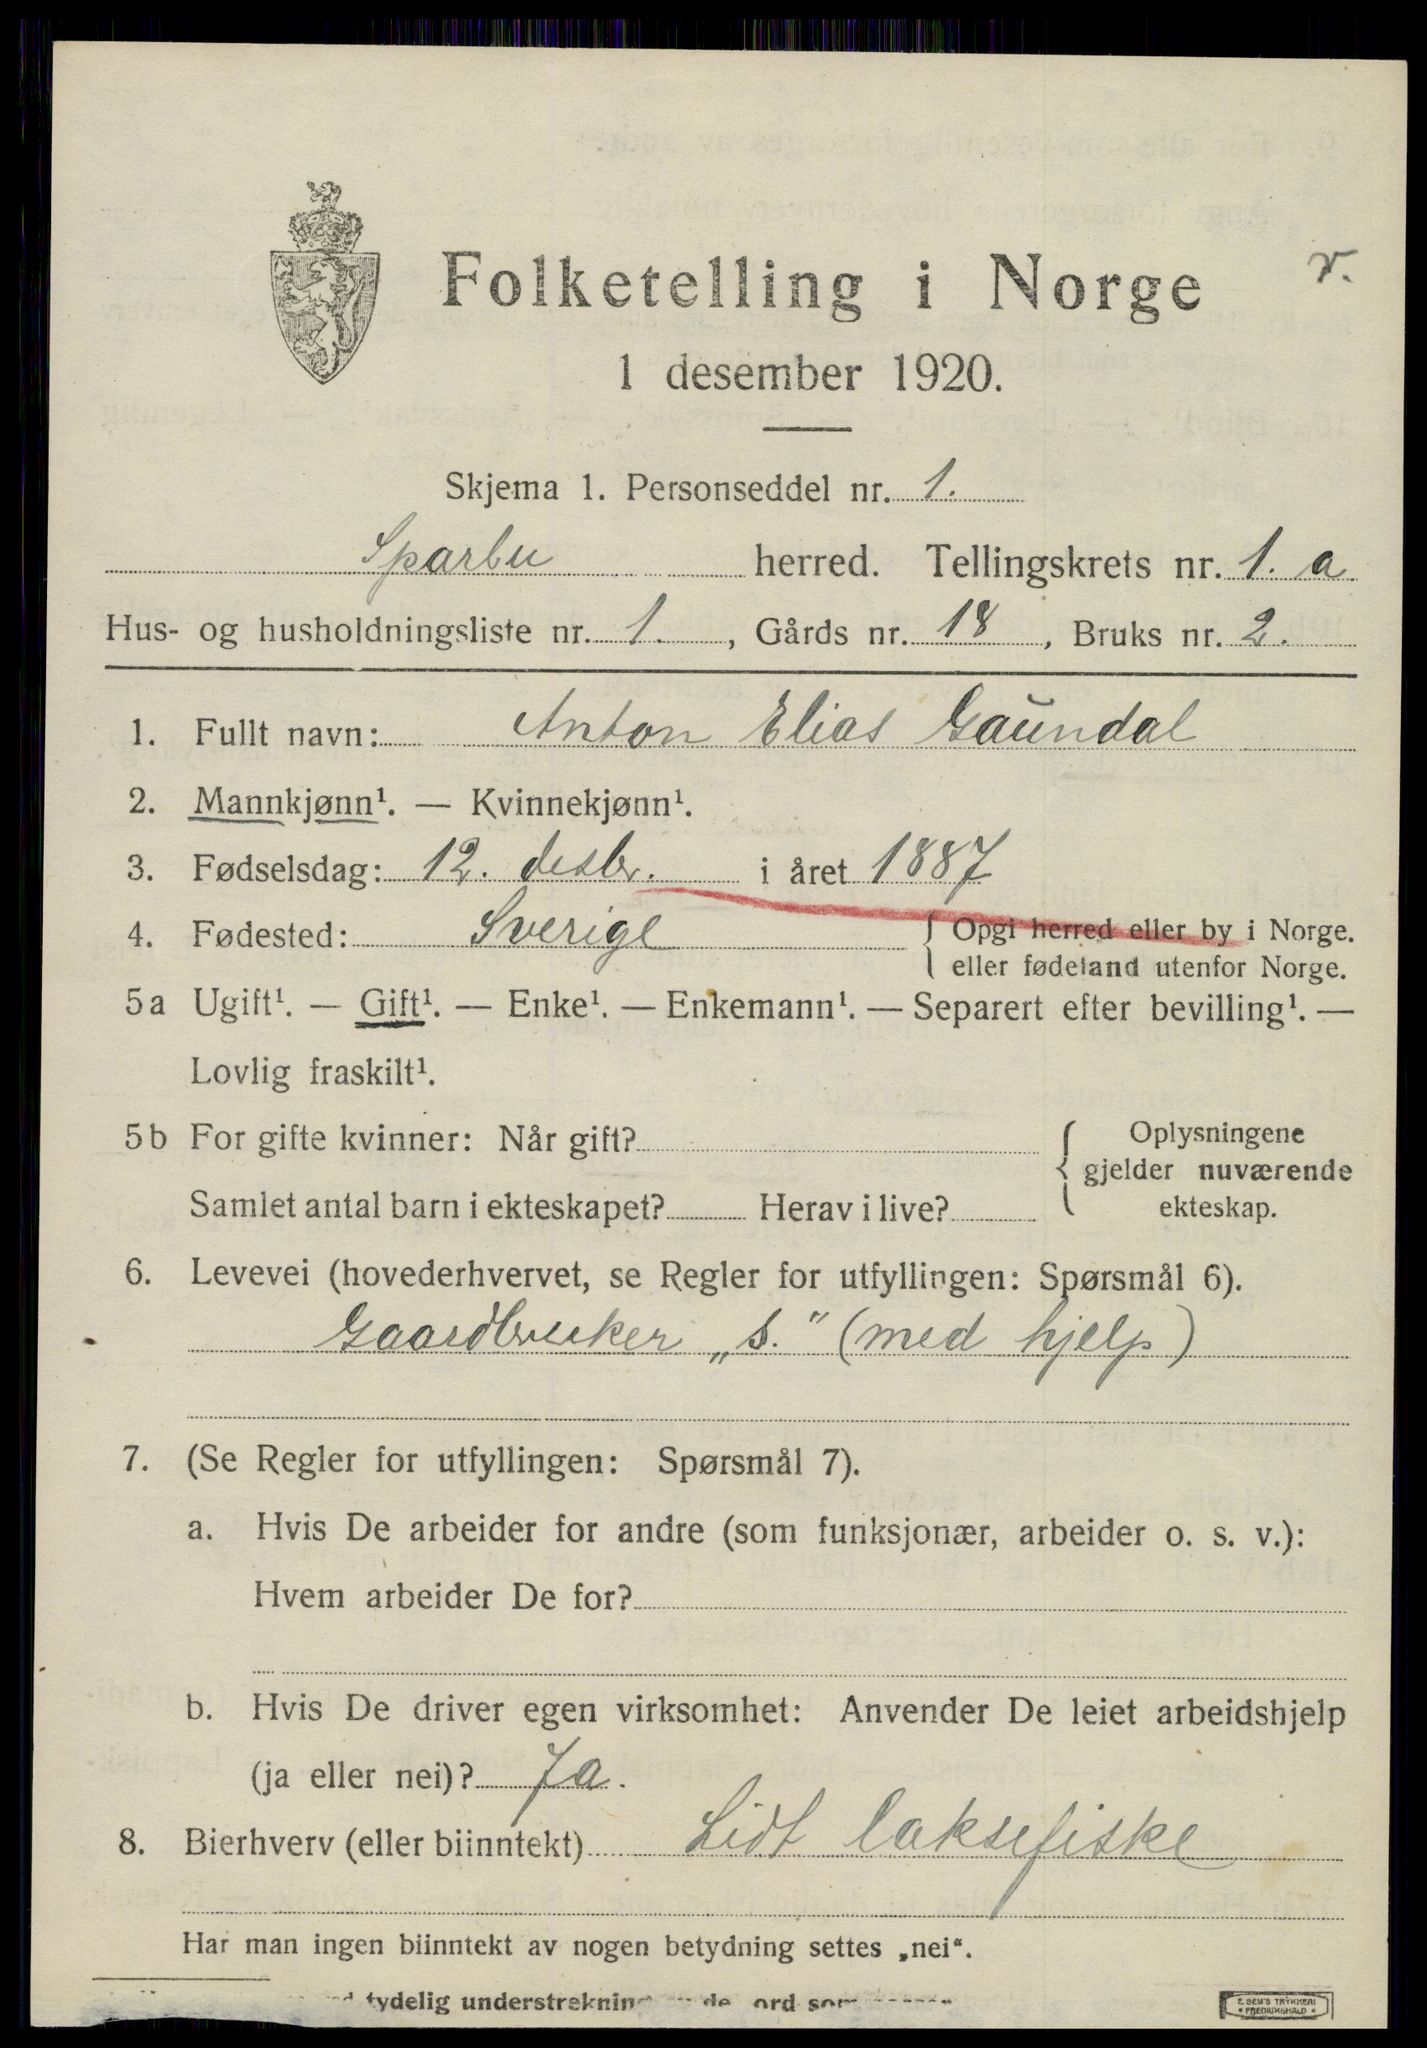 Folketelling i Norge
v.
1 desember 1920.
Skjema 1. Personseddel nr. 1.
Sparbu herred. Tellingskrets nr. 1. a
Hus- og husholdningsliste nr. 1., Gårds nr. 18, Bruks nr. 2.
1. Fullt navn: Anton Elias Gaundal
2. Mannkjønn¹. — Kvinnekjønn¹.
3. Fødselsdag: 12. desbr. i året 1887
4. Fødested: Sverige { Opgi herred eller by i Norge.
eller fødeland utenfor Norge.
5a Ugift¹. — Gift¹. — Enke¹. — Enkemann¹. — Separert efter bevilling¹. —
Lovlig fraskilt¹.
5b For gifte kvinner: Når gift?
Samlet antal barn i ekteskapet? Herav i live?
{ Oplysningene
gjelder nuværende
ekteskap.
6. Levevei (hovederhvervet, se Regler for utfyllingen: Spørsmål 6).
Gaardbruker „s." (med hjelp)
7. (Se Regler for utfyllingen: Spørsmål 7).
a. Hvis De arbeider for andre (som funksjonær, arbeider o. s. v.):
Hvem arbeider De for?
b. Hvis De driver egen virksomhet: Anvender De leiet arbeidshjelp
(ja eller nei)? Ja.
8. Bierhverv (eller biinntekt) Lidt laksefiske
Har man ingen biinntekt av nogen betydning settes „nei".
tydelig understreking de ord som
E. SEM'S TRYKKERI
FREDRIKSHALD